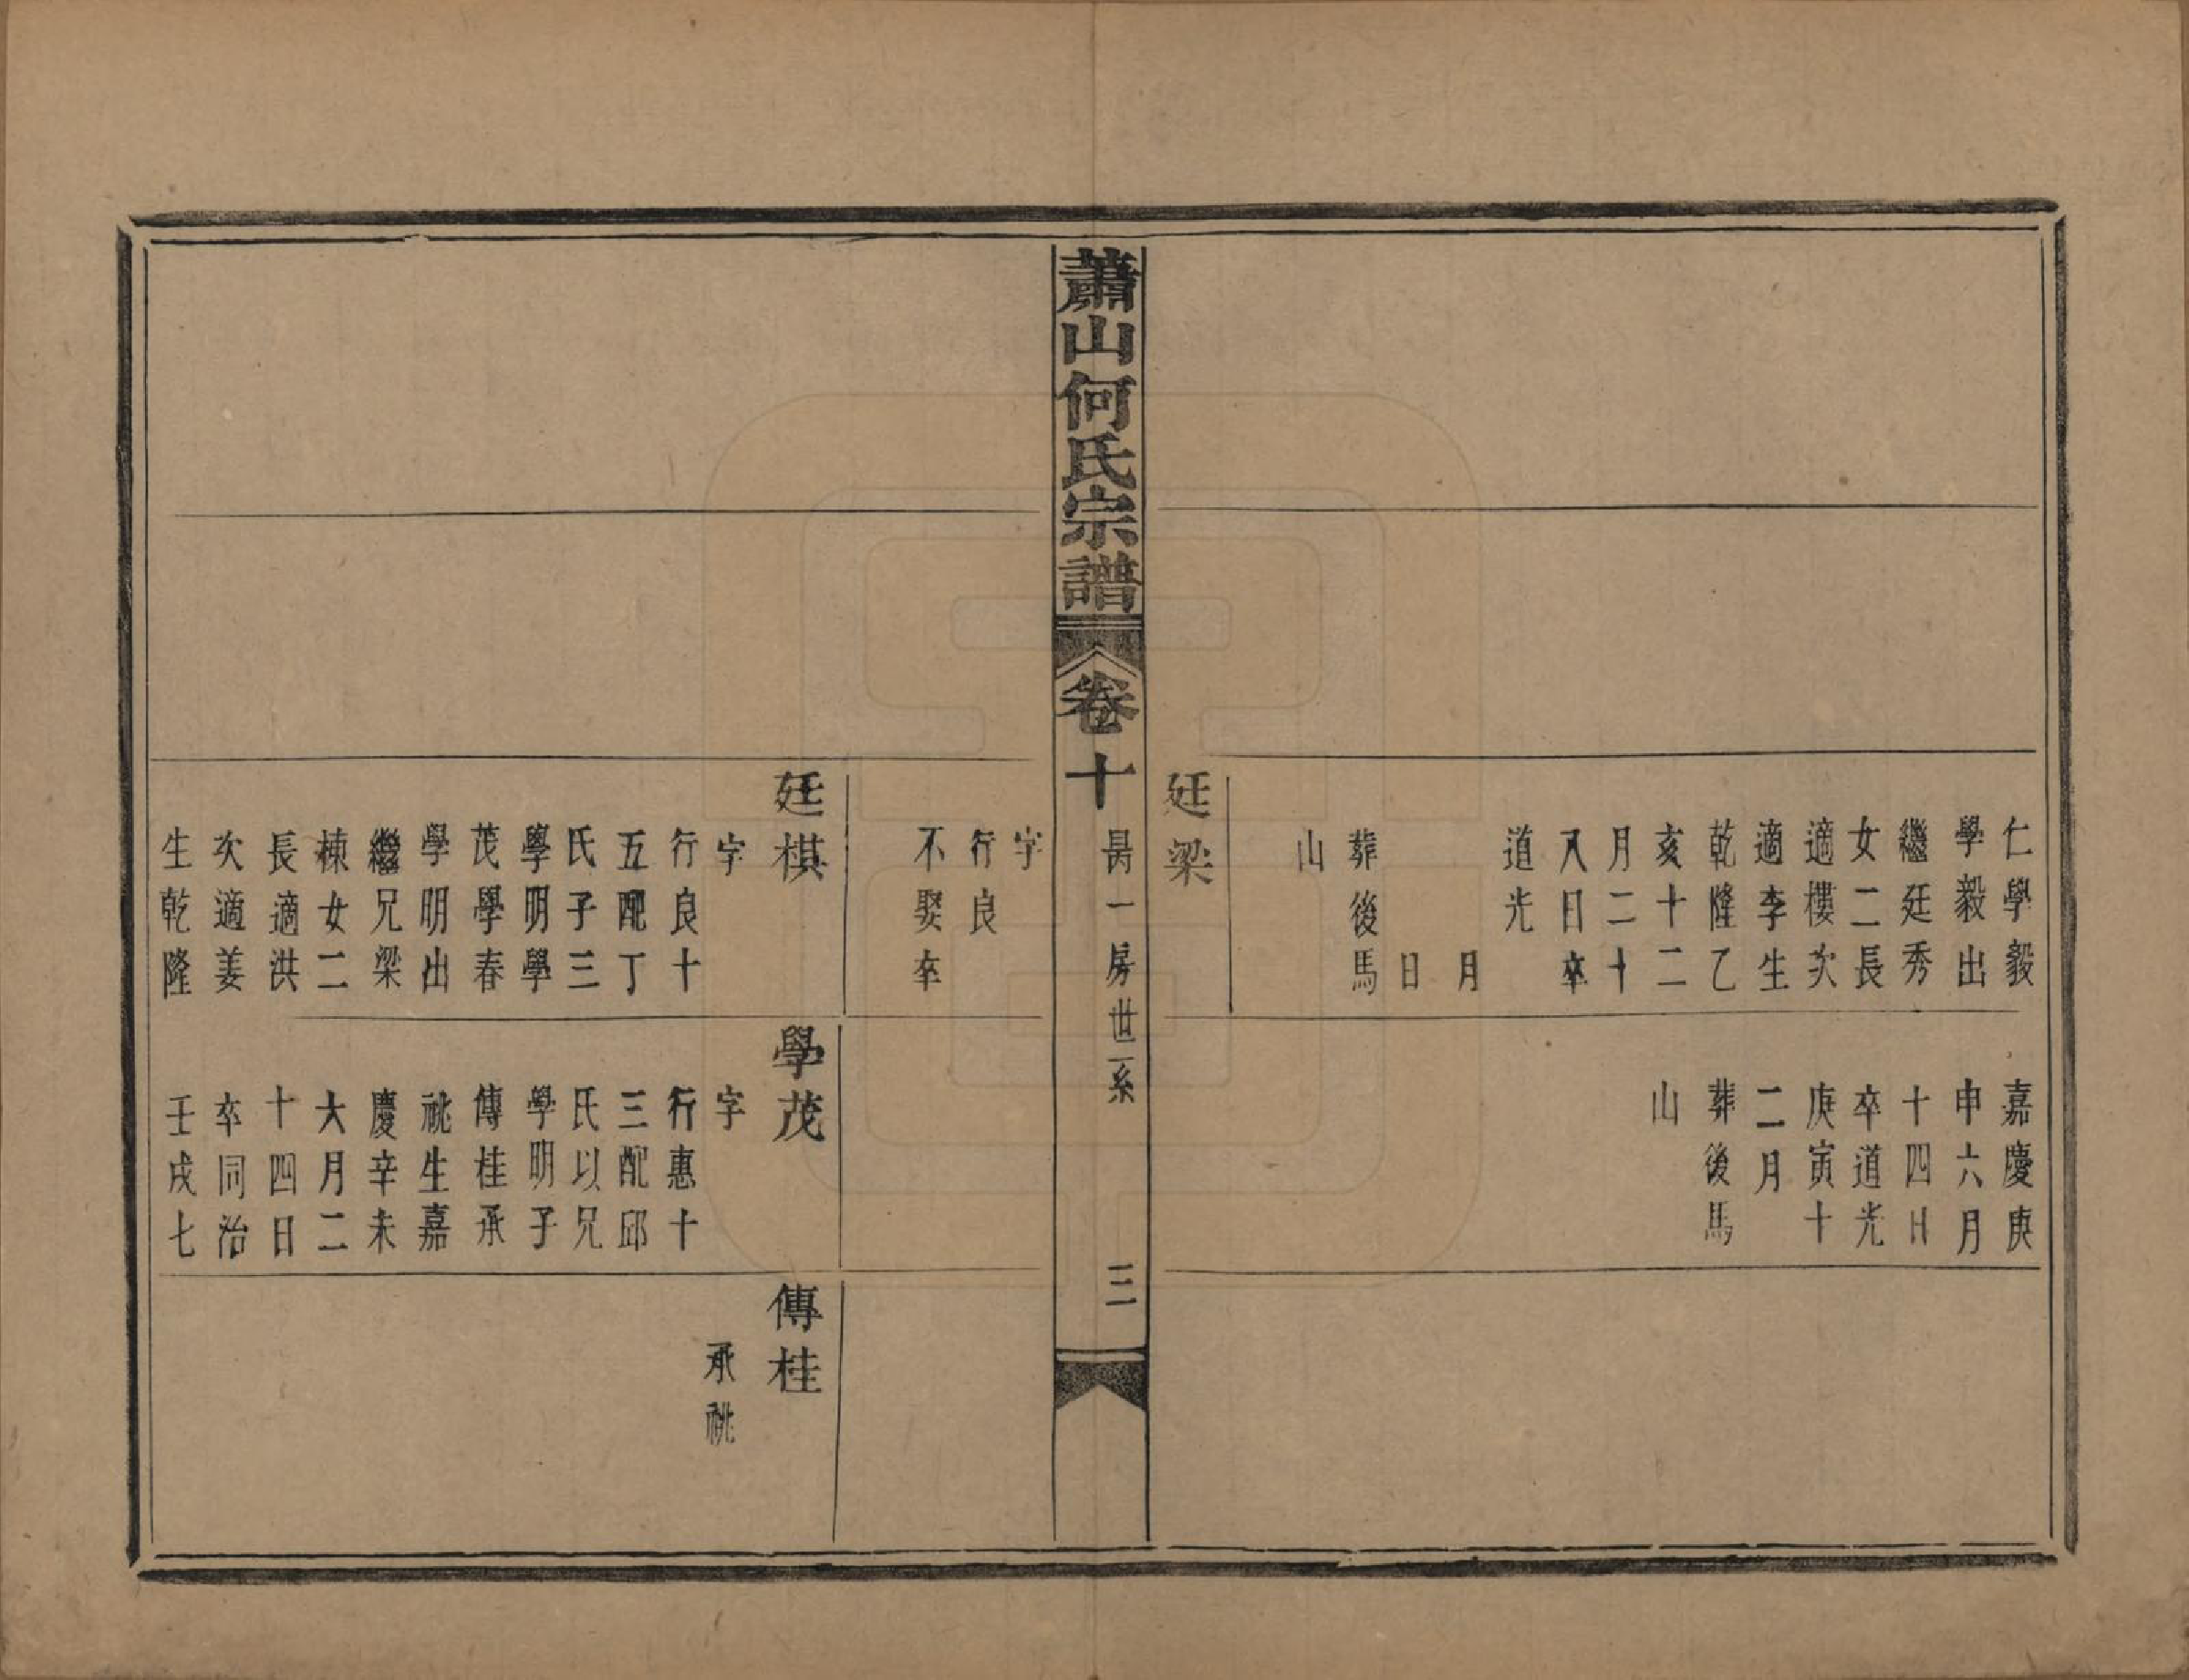 仁學毅
學毅出
繼廷秀
女二長
適樓次
適李生
乾隆乙
亥十二
月二十
八日卒
道光
月
日
葬後馬
山
廷梁
嘉慶庚
申六月
十四日
卒道光
庚寅十
二月
葬後馬
山
蕭山何氏宗譜
卷十
昺一房世系
三
字
行良
不娶卒
廷棋
字
行良十
五配丁
氏子三
學明學
茂學春
學明出
繼兄梁
棟女二
長適洪
次適姜
生乾隆
學茂
字
行惠十
三配邱
氏以兄
學明子
傳桂承
祧生嘉
慶辛未
六月二
十四日
卒同治
壬戌七
傳桂
承祧